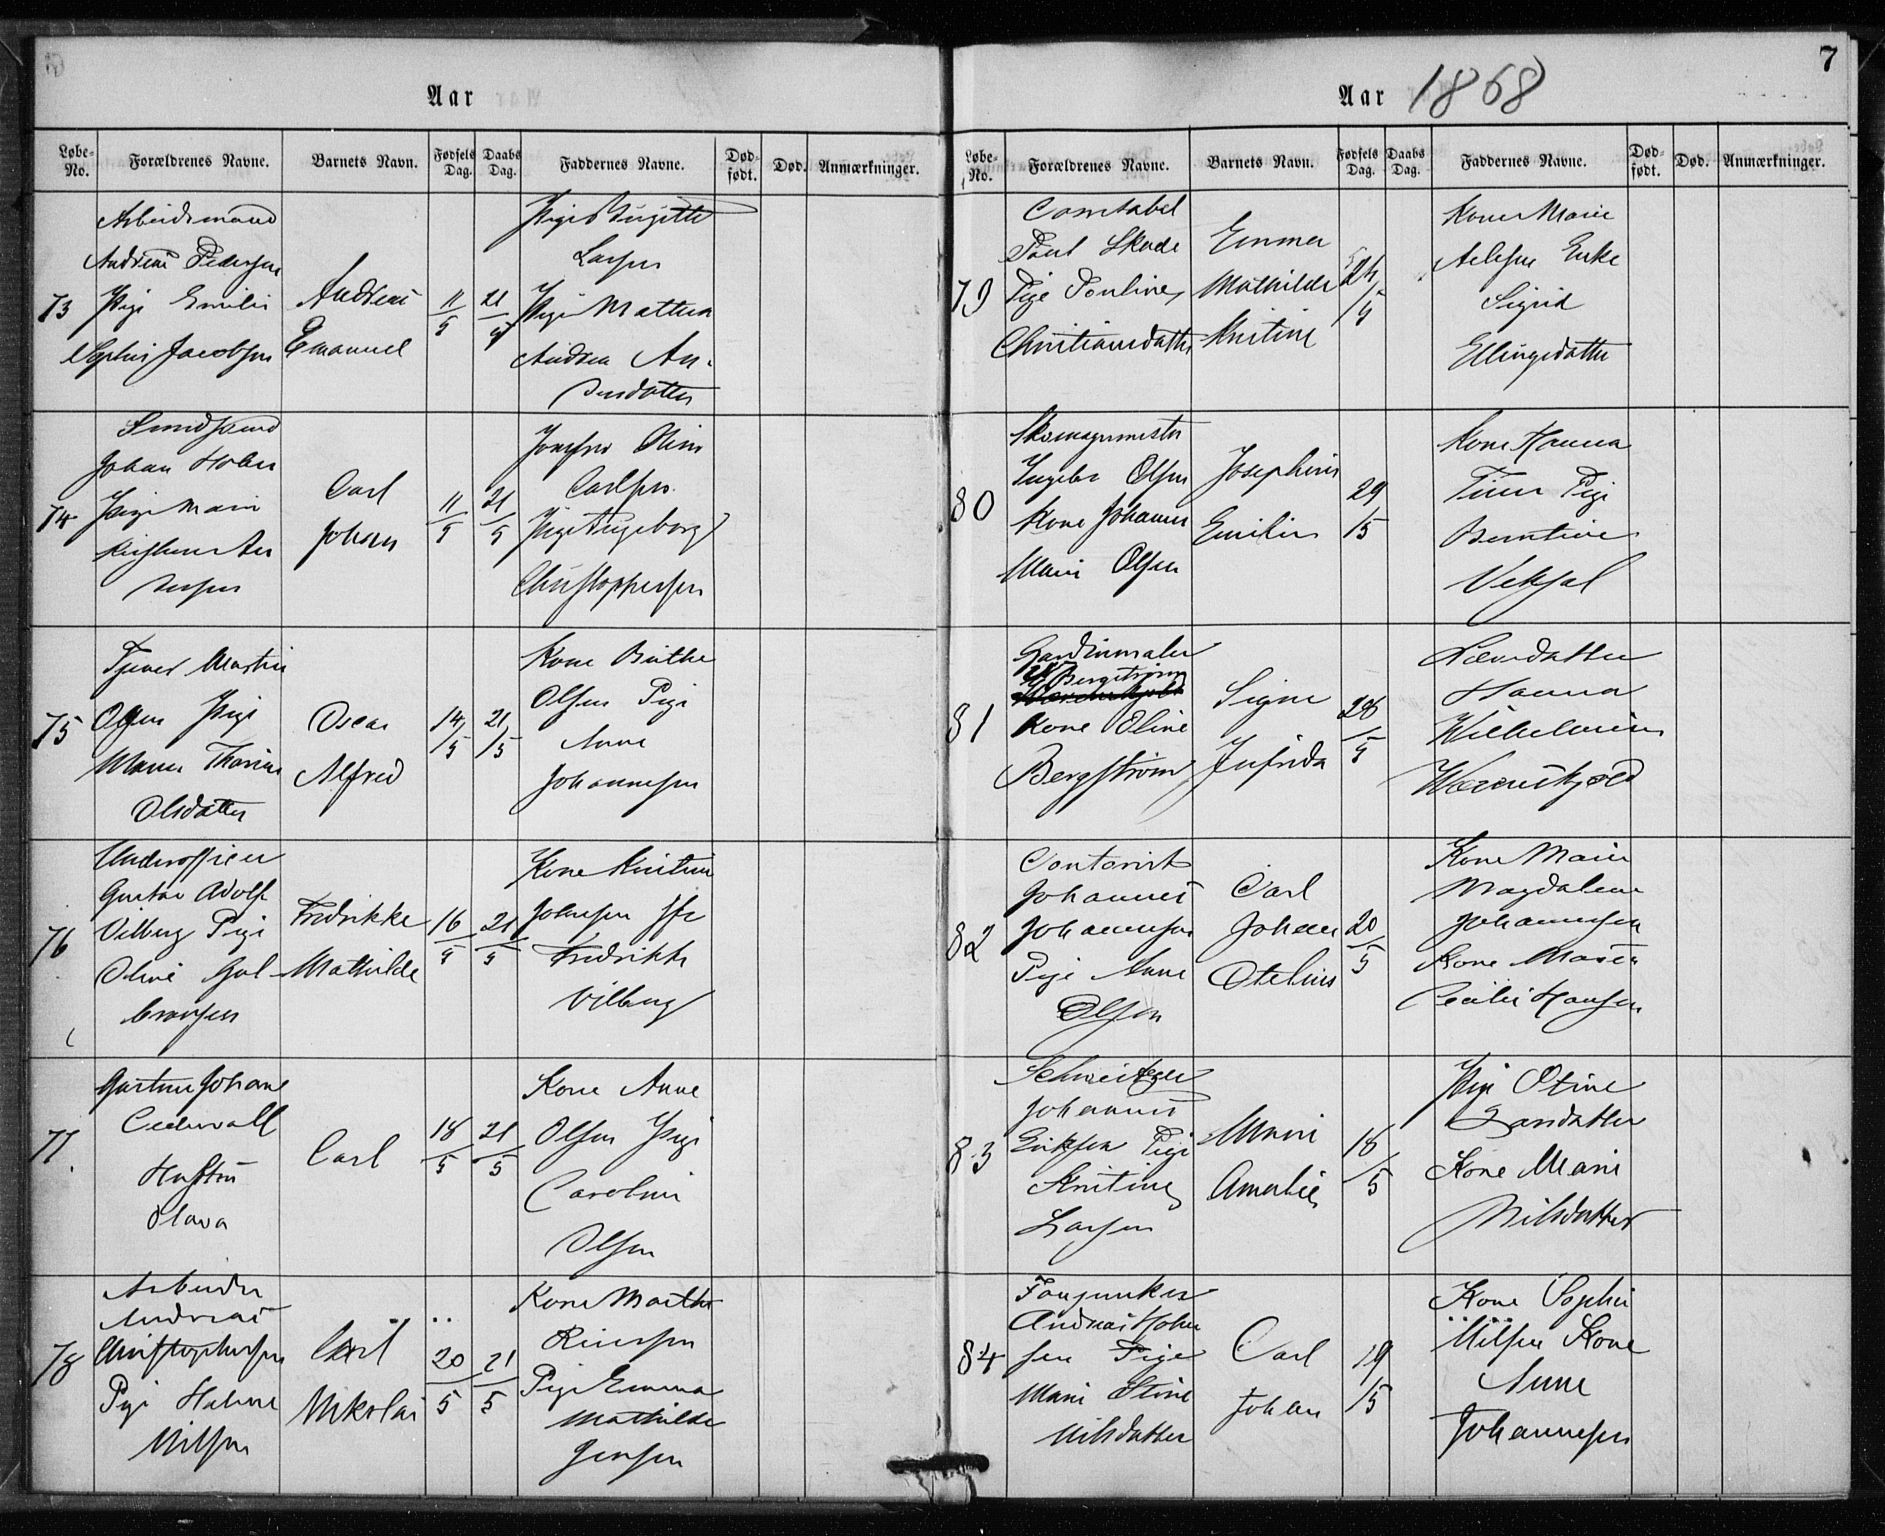 Aar
Løbe-No. Forældrenes Navne. Barnets Navn. Fødsels Dag. Daabs Dag. Faddernes Navne. Død-født. Død. Anmærkninger.
73
Arbeidsmand
Andreas Pedersen
Pige Emilie
Sophie Jacobsen
Andreas
Emanuel
11/5
21/5
Pige Birgitte
Larsen
Pige Mathea
Andrea An-
dersdatter
74
Smedsvend
Johan Holm
Pige Marie
An
dersen
Carl
Johan
11/5
21/5
Jomfru Oline
Carlsen
Pige Ingeborg
Christophersen
75
Tjener Martin
Olsen Pige
Maren Thorine
Olsdatter
Oscar
Alfred
14/5
21/5
Kone Birthe
Olsen Pige
Anne
Johannesen
76
Underofficer
Gustav Adolf
Vilberg Pige
Oline Gul-
bransen
Fredrikke
Mathilde
16/5
21/5
Kone Kristine
Johnsen
Fredrikke
Vilberg
77
Gartner Johan
Cedervall
Hustru
Olava
Carl
18/5
21/5
Kone Anne
Olsen Pige
Caroline
Olsen
78
Arbeider
Andreas
Christophersen
Pige Helene
Nilsen
Carl
Nikolai
20/5
21/5
Kone Marthe
Pige Emma
Mathilde
Jensen
7
Aar 1868
Løbe-No. Forældrenes Navne. Barnets Navn. Fødsels Dag. Daabs Dag. Faddernes Navne. Død-født. Død. Anmærkninger.
79
Constabel
Poul Skade
Pige Pouline
Christiansdatter
Emma
Mathilde
Kristine
Kone Marie
Enke
Sigrid
Ellingsdatter
80
Skomagermester
Ingebr Olsen
Kone Johanne
Marie Olsen
Josephine
Emilie
29/5
Kone Hanna
Pige
Berntine
81
Gardinmaler
Bergstrøm
Kone Eline
Bergstrøm
Signe
28/5
Hanna
Wilhelmine
Werenskjold
82
Contorist
Johannes
Johannesen
Pige Anne
Olsen
Carl
Johan
Otelius
20/5
Kone Marie
Magdalene
Johannesen
Kone Maren
Cecilie Hansen
83
Schweitzer
Johannes
Eriksen Pige
Kristine
Larsen
Marie
Amalie
18/5
Pige Stine
Larsdatter
Kone Marie
Nilsdatter
84
Fanejunker
Andreas Holm
sen Pige
Marie Stine
Nilsdatter
Carl
Johan
19/5
Kone Sophie
Nilsen Kone
Anne
Johannesen